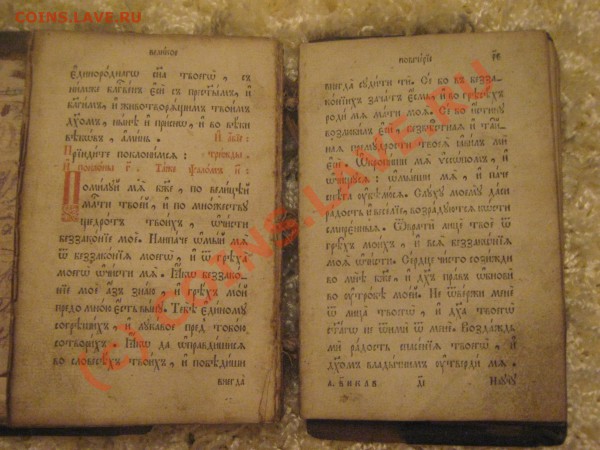 COINS.LAVE.RU
великое
единороднагѡ сн҃а твоегѡ, съ
нимже бл҃гвенъ еси съ прест҃ымъ, и
бл҃гимъ, и животворащимъ твоимъ
дх҃омъ, нынѣ и присно, и во вѣки
вѣкѡвъ, аминь.
Прїидите поклонимсѧ: трижды.
И поклоны г҃. Таже ѱаломъ н҃.
Помилуй мѧ бж҃е, по велицѣй
мл҃ти твоей, и по множеству
щедротъ твоихъ, ѡчисти
беззаконїе мое. Наипаче ѡмый мѧ
ѿ беззаконїѧ моегѡ, и ѿ грѣха
моегѡ ѡчисти мѧ. Ꙗкѡ беззако-
нїе мое азъ знаю, и грѣхъ мой
предо мною есть выну. Тебѣ единому
согрѣшихъ, и лукавое предъ тобою
сотворихъ: Ꙗкѡ да ѡправдишисѧ
во словесѣхъ твоихъ, и побѣдиши
внегда
повечерїе
внегда судити ти. Се бо въ безза-
конїихъ зачатъ есмь, и во грѣсѣхъ
роди мѧ мати моѧ. Се бо истину
возлюбилъ еси, безвѣстнаѧ и тай-
наѧ премудрости твоеѧ ꙗвилъ ми
еси. Ѡкропиши мѧ ѵссопомъ, и
ѡчищусѧ: ѡмыеши мѧ, и паче
снѣга убѣлюсѧ. Слуху моему даси
радость и веселїе, возрадуютсѧ кѡсти
смиренныѧ. Ѿврати лице твое ѿ
грѣхъ моихъ, и всѧ беззаконїѧ
моѧ ѡчисти. Сердце чисто созижди
во мнѣ бж҃е, и дх҃ъ правъ ѡбнови
во утробѣ моей. Не ѿвержи мене
ѿ лица твоегѡ, и дх҃а твоегѡ
ст҃агѡ не ѿими ѿ мене. Воздаждь
ми радость спасенїѧ твоегѡ, и
дх҃омъ владычнимъ утверди мѧ.
Науч
(c) COINS.LAVE.RU